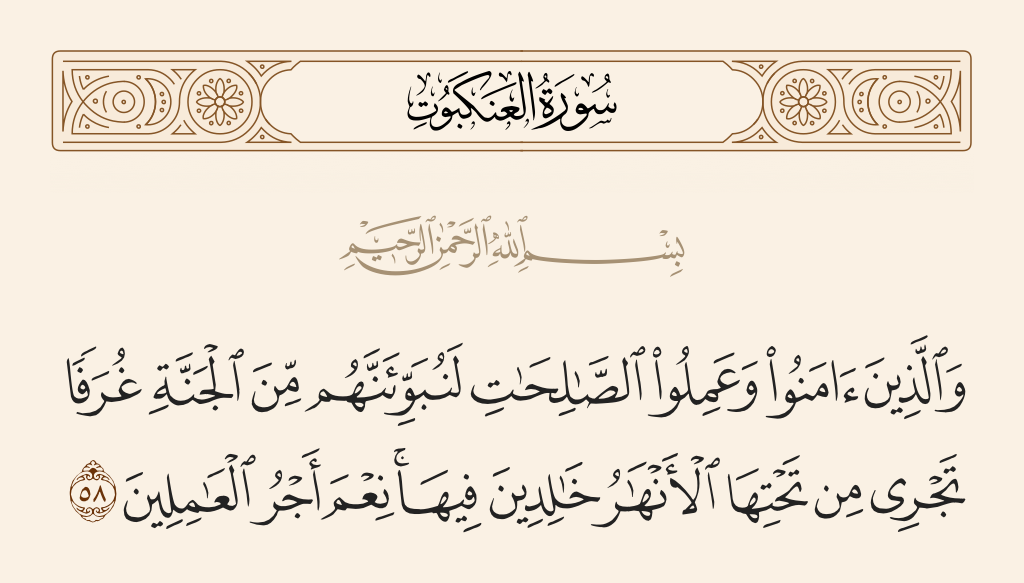 سُورَةُ العَنكَبُوتِ
بِسْمِ ٱللَّهِ ٱلرَّحْمَٰنِ ٱلرَّحِيمِ
وَٱلَّذِينَ ءَامَنُوا۟ وَعَمِلُوا۟ ٱلصَّـٰلِحَـٰتِ لَنُبَوِّئَنَّهُم مِّنَ ٱلْجَنَّةِ غُرَفًا
تَجْرِى مِن تَحْتِهَا ٱلْأَنْهَـٰرُ خَـٰلِدِينَ فِيهَا ۚ نِعْمَ أَجْرُ ٱلْعَـٰمِلِينَ ٥٨